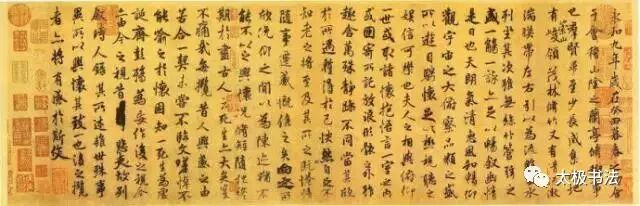 永和九年歲在癸丑暮春之初會
于會稽山陰之蘭亭脩稧事
也羣賢畢至少長咸集此地
有崇山峻領茂林脩竹又有清流激
湍暎帶左右引以為流觴曲水
列坐其次雖無絲竹管弦之
盛一觴一詠亦足以暢敘幽情
是日也天朗氣清惠風和暢仰
觀宇宙之大俯察品類之盛
所以遊目騁懷足以極視聽之
娛信可樂也夫人之相與俯仰
一世或取諸懷抱悟言一室之內
或因寄所託放浪形骸之外雖
趣舍萬殊靜躁不同當其欣
於所遇蹔得於己快然自足不
知老之將至及其所之既惓情
隨事遷感慨係之矣向之所
欣俛仰之間以為陳迹猶不
能不以之興懷況脩短隨化終
期於盡古人云死生亦大矣豈
不痛哉每攬昔人興感之由
若合一契未嘗不臨文嗟悼不
能喻之於懷固知一死生為虛
誕齊彭殤為妄作後之視今
亦由今之視昔悲夫故列
敘時人錄其所述雖世殊事
異所以興懷其致一也後之攬
者亦將有感於斯文
太极书法